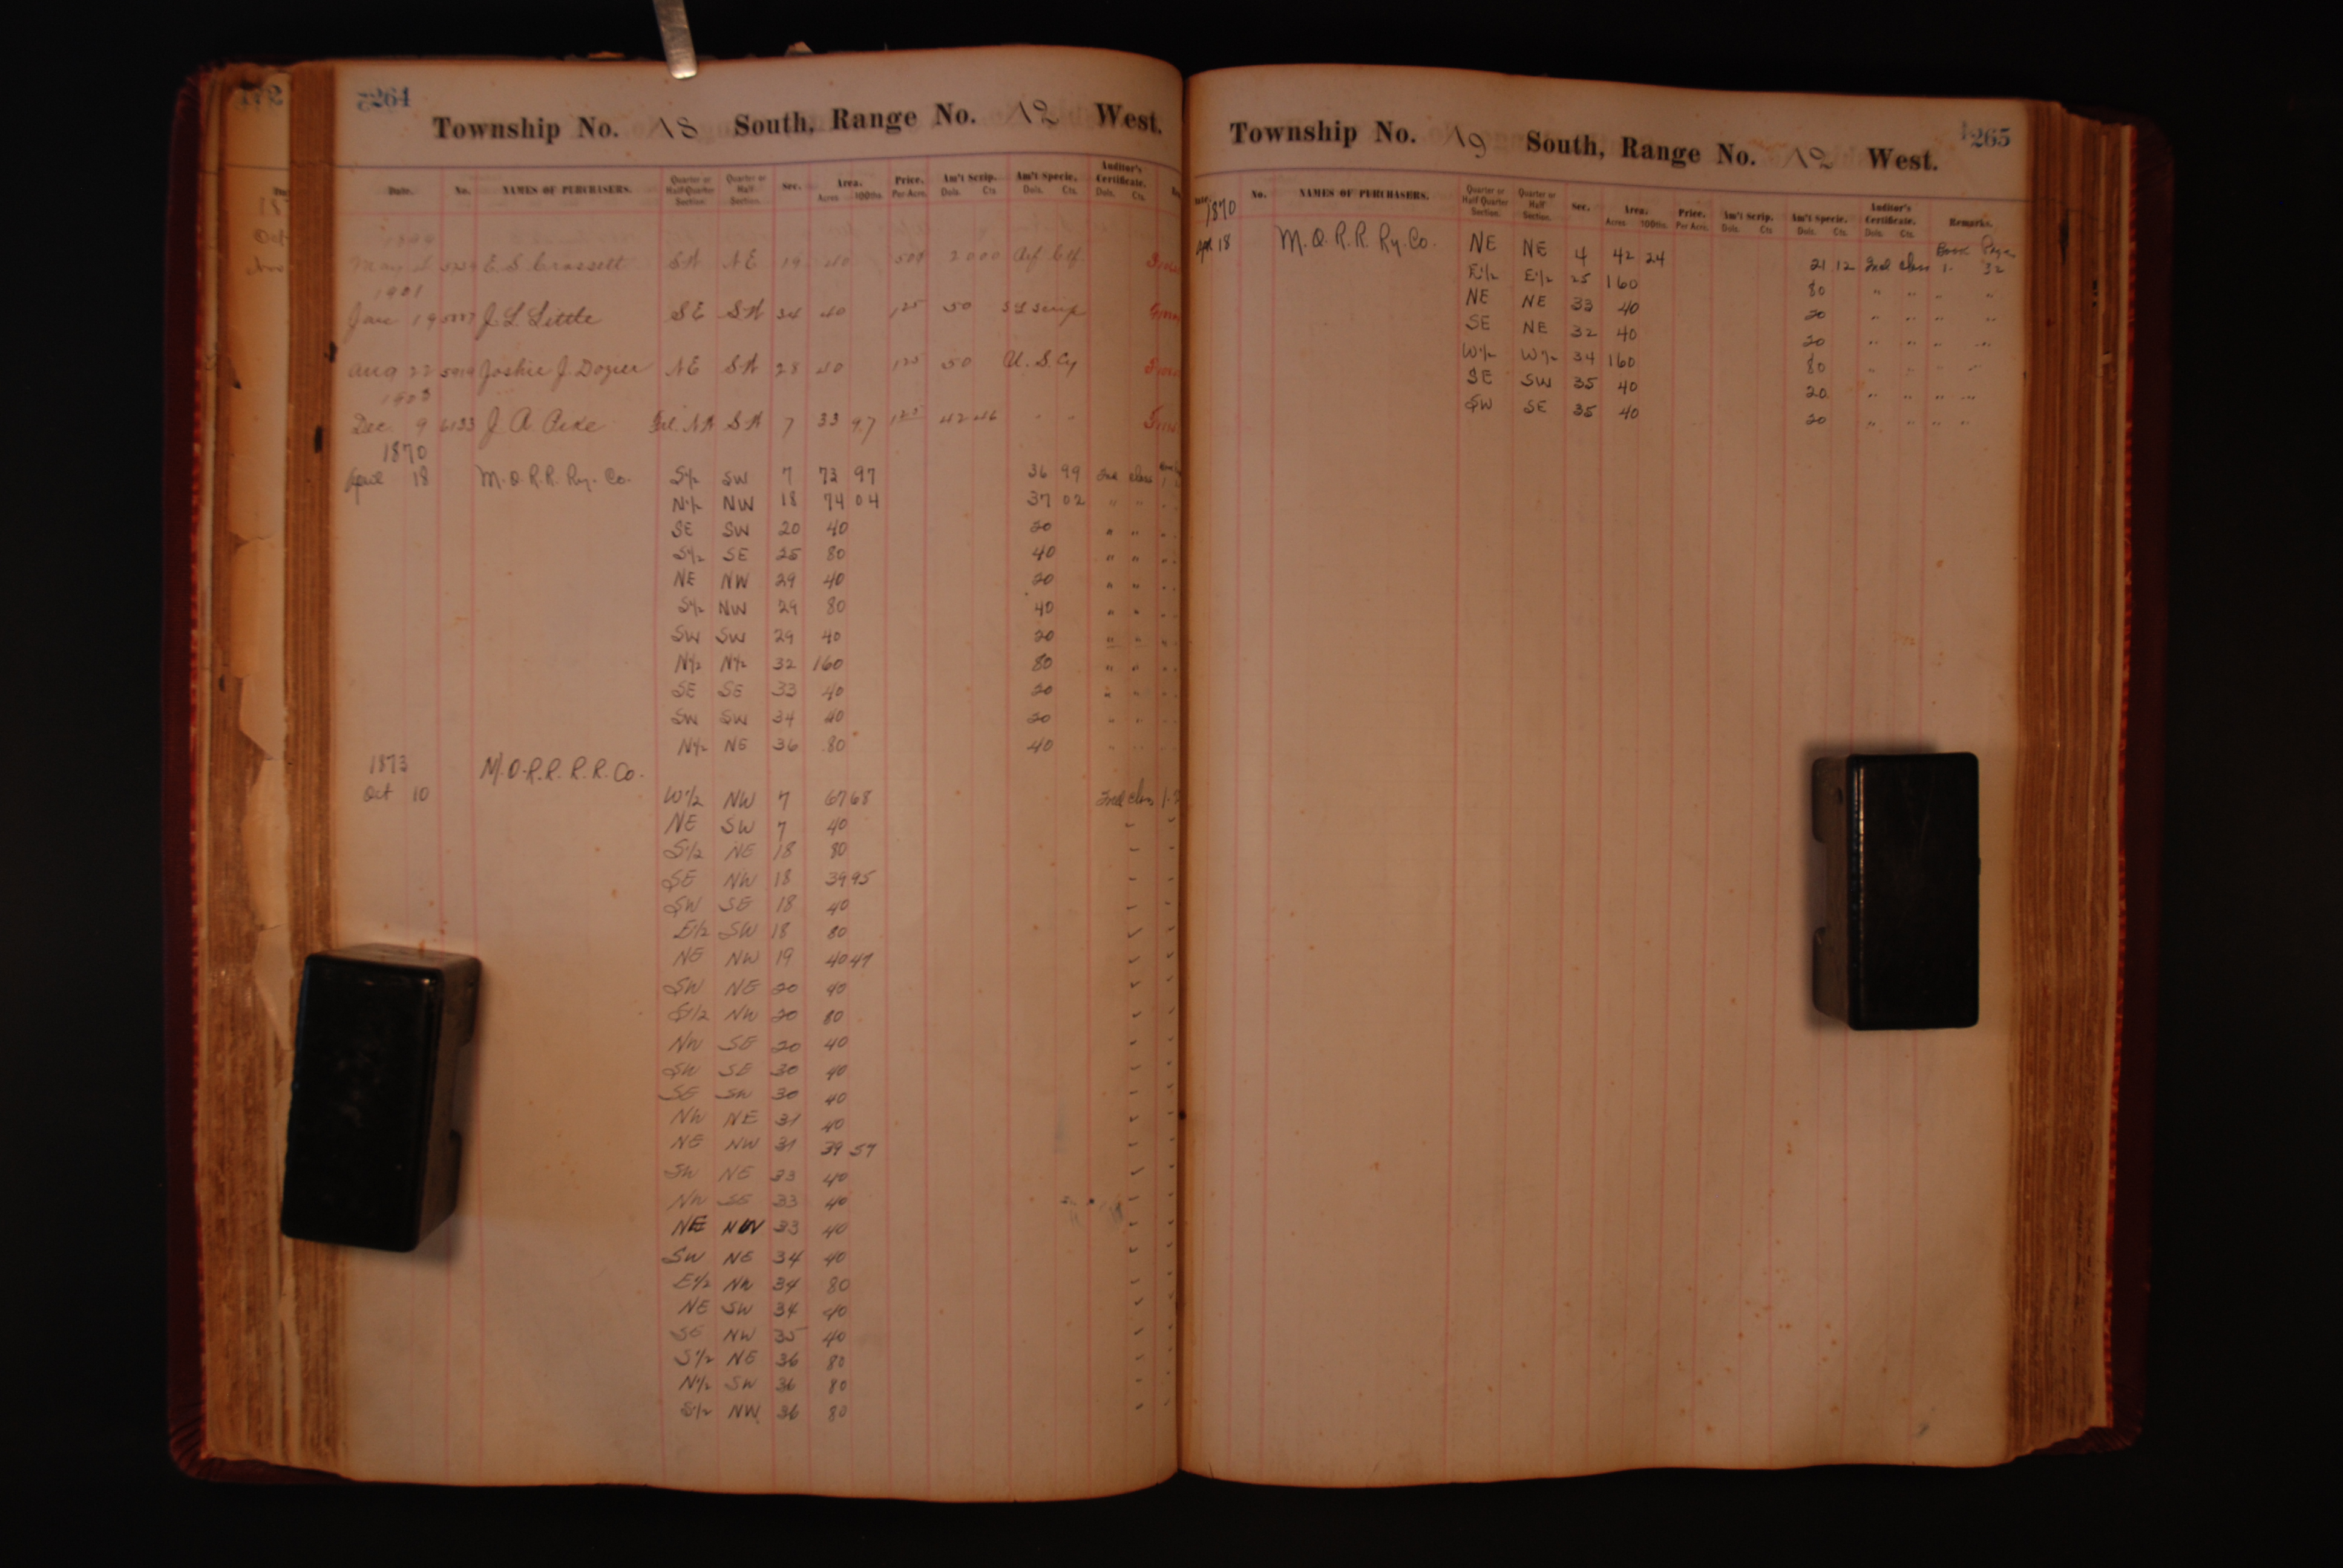 264
Township No. 18 South, Range No. 12 West.
Date. No. NAMES OF PURCHASERS. Quarter or Half Quarter Section. Quarter or Half Section. Sec. Area. Acres 100ths Price. Per Acre. Am't Scrip. Dols. Cts Am't Specie. Dols. Cts. Auditor's Certificate. Dols. Cts.
May E. S. Crossett SW NE 19 40 500 2000
1901
Jan 19 J. L. Little SE SW 34 40 1 25 50 scrip
Aug 22 5919 Joshie J. Dozier NE SW 28 40 1 25 50 U. S. Cy
1903
Dec 9 6133 J. A. Frl. NW SW 7 33 97 1 25 42 46 " "
1870
April 18 M. O. R. R. Ry. Co. S½ SW 7 73 97 36 99 2nd class
N½ NW 18 74 04 37 02 " "
SE SW 20 40 20 " "
S½ SE 25 80 40 " "
NE NW 29 40 20 " "
S½ NW 29 80 40 " "
SW SW 29 40 20 " "
N½ N½ 32 160 80 " "
SE SE 33 40 20 " "
SW SW 34 40 20 " "
N½ NE 36 80 40 " "
1873 M. O. R. R. R. R. Co.
Oct 10 W½ NW 7 67 68 2nd class
NE SW 7 40
S½ NE 18 80
SE NW 18 39 95
SW SE 18 40
E½ SW 18 80
NE NW 19 40 47
SW NE 20 40
NW 20 80
NW SE 20 40
SW SE 30 40
SE SW 30 40
NW NE 31 40
NE NW 31 39 57
SW NE 33 40
NW SE 33 40
NE NW 33 40
SW NE 34 40
E½ NW 34 80
NE SW 34 40
SE NW 35 40
S½ NE 36 80
N½ SW 36 80
S½ NW 36 80
265
Township No. 19 South, Range No. 12 West.
Date. No. NAMES OF PURCHASERS. Quarter or Half Quarter Section. Quarter or Half Section. Sec. Area. Acres 100ths Price. Per Acre. Am't Scrip. Dols. Cts Am't Specie. Dols. Cts. Auditor's Certificate. Dols. Cts. Remarks.
1870
Book Page
Apr 18 M. O. R. R. Ry. Co. NE NE 4 42 24 21 12 2nd class 1 32
E½ E½ 25 160 80 " " " "
NE NE 33 40 20 " " " "
SE NE 32 40 20 " " " "
W½ W½ 34 160 80 " " " "
SE SW 35 40 20 " " " "
SW SE 35 40 20 " " " "